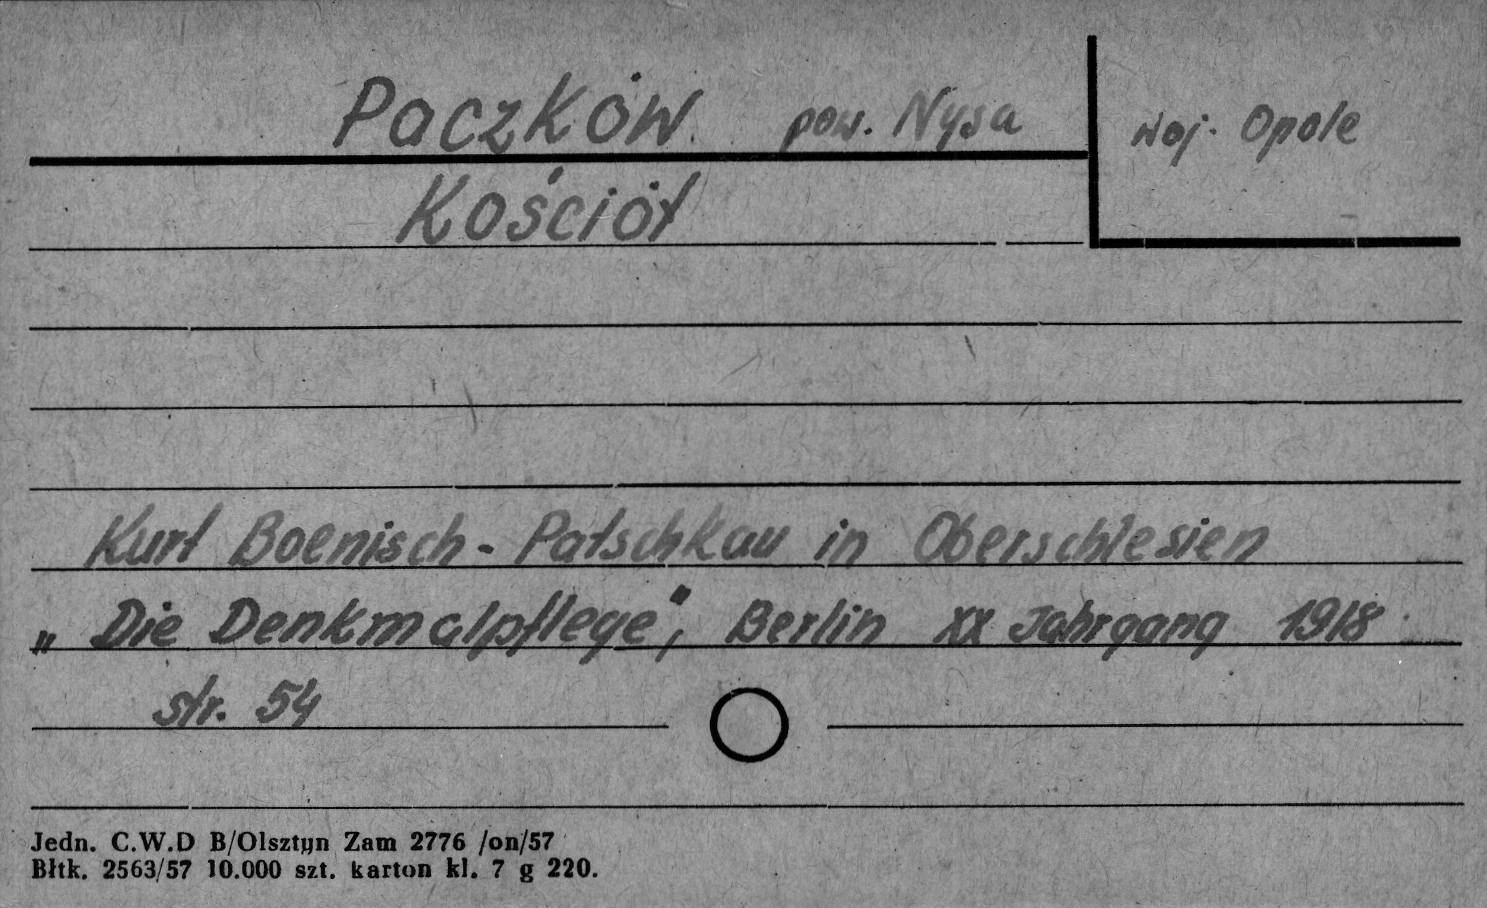 Paczków pow. Nysa
woj. Opole
Kościół
Kurt Boenisch - Patschkau in Oberschlesien
„Die Denkmalpflege", Berlin XX Jahrgang 1918
str. 54
Jedn. C.W.D B/Olsztyn Zam 2776 /on/57
Błtk. 2563/57 10.000 szt. karton kl. 7 g 220.